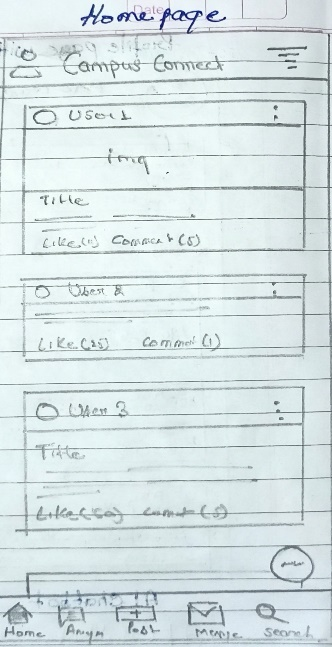 Home page
Campus Connect
User 1
img
Title
Like(11) Comment(5)
User 2
Like(25) Comment(1)
User 3
Title
Like(50) Comment(5)
Home Post Search